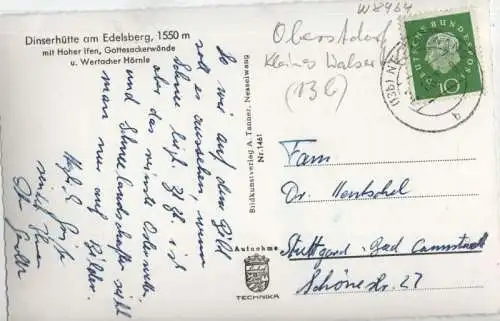 Dinserhütte am Edelsberg, 1550 m
mit Hoher Ifen, Gottesackerwände
u. Wertacher Hörnle
So wie auf dem Bild
soll es aussehen, wenn
Schnee liegt. Zt. Zt. ist
aber das Osterwetter
und Schneelandschaften sieht
man nur auf Bildern.
Herzl. Grüße
Bildkunstverlag A. Tanner, Nesselwang
Nr. 1461
Aufnahme
TECHNIKA
W8464
Oberstdorf
kleines Walser
(13b)
DEUTSCHE BUNDESPOST
10
(13b)
Fam
Dr. Hentschel
Stuttgart - Bad Cannstadt
Schönestr. 27